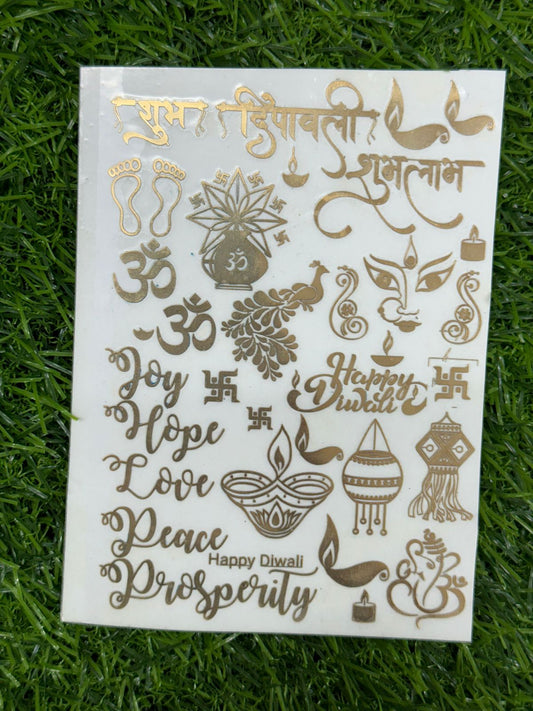 शुभ
दिपावली
शुभ लाभ
ॐ
ॐ
ॐ
Happy
Diwali
Joy
Hope
Love
Peace
Happy Diwali
Prosperity